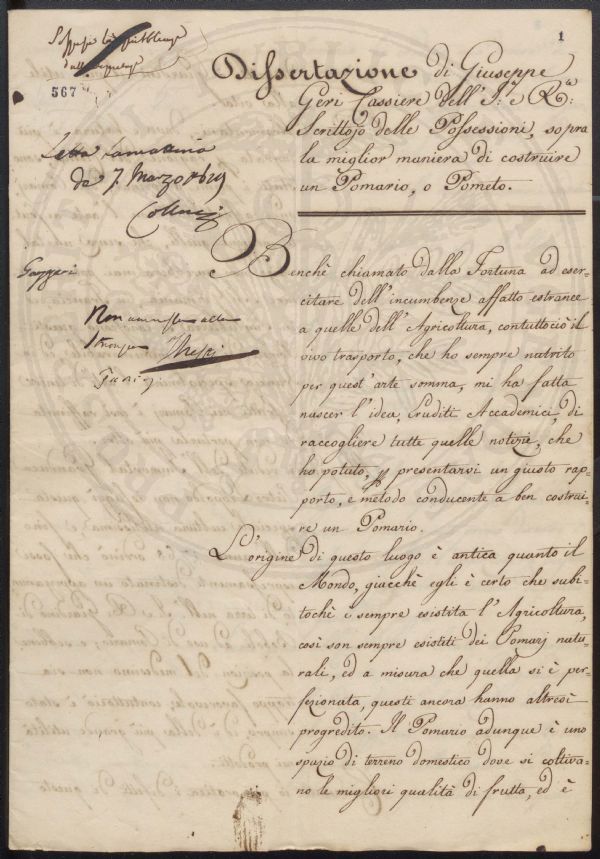 1
567
Dissertazione di Giuseppe
Geri Cassiere dell'I: e R:
Scrittojo delle Possessioni, sopra
la miglior maniera di costruire
un Pomario, o Pometo.
Letta
de 7. Marzo
Gazzeri
Non
Benchè chiamato dalla Fortuna ad eser-
citare dell'incumbenze affatto estranee
a quelle dell'Agricoltura, contuttociò il
vivo trasporto, che ho sempre nutrito
per quest'arte somma, mi ha fatta
nascer l'idea, Eruditi Accademici, di
raccogliere tutte quelle notizie, che
ho potuto, p presentarvi un giusto rap-
porto, e metodo conducente a ben costrui-
re un Pomario.
L'origine di questo luogo è antica quanto il
Mondo, giacchè egli è certo che subi-
tochè è sempre esistita l'Agricoltura,
così son sempre esistiti dei Pomarj natu-
rali, ed a misura che quella si è per-
fezionata, questi ancora hanno altresì
progredito. Il Pomario adunque è uno
spazio di terreno domestico dove si coltiva-
no le migliori qualità di frutta, ed è